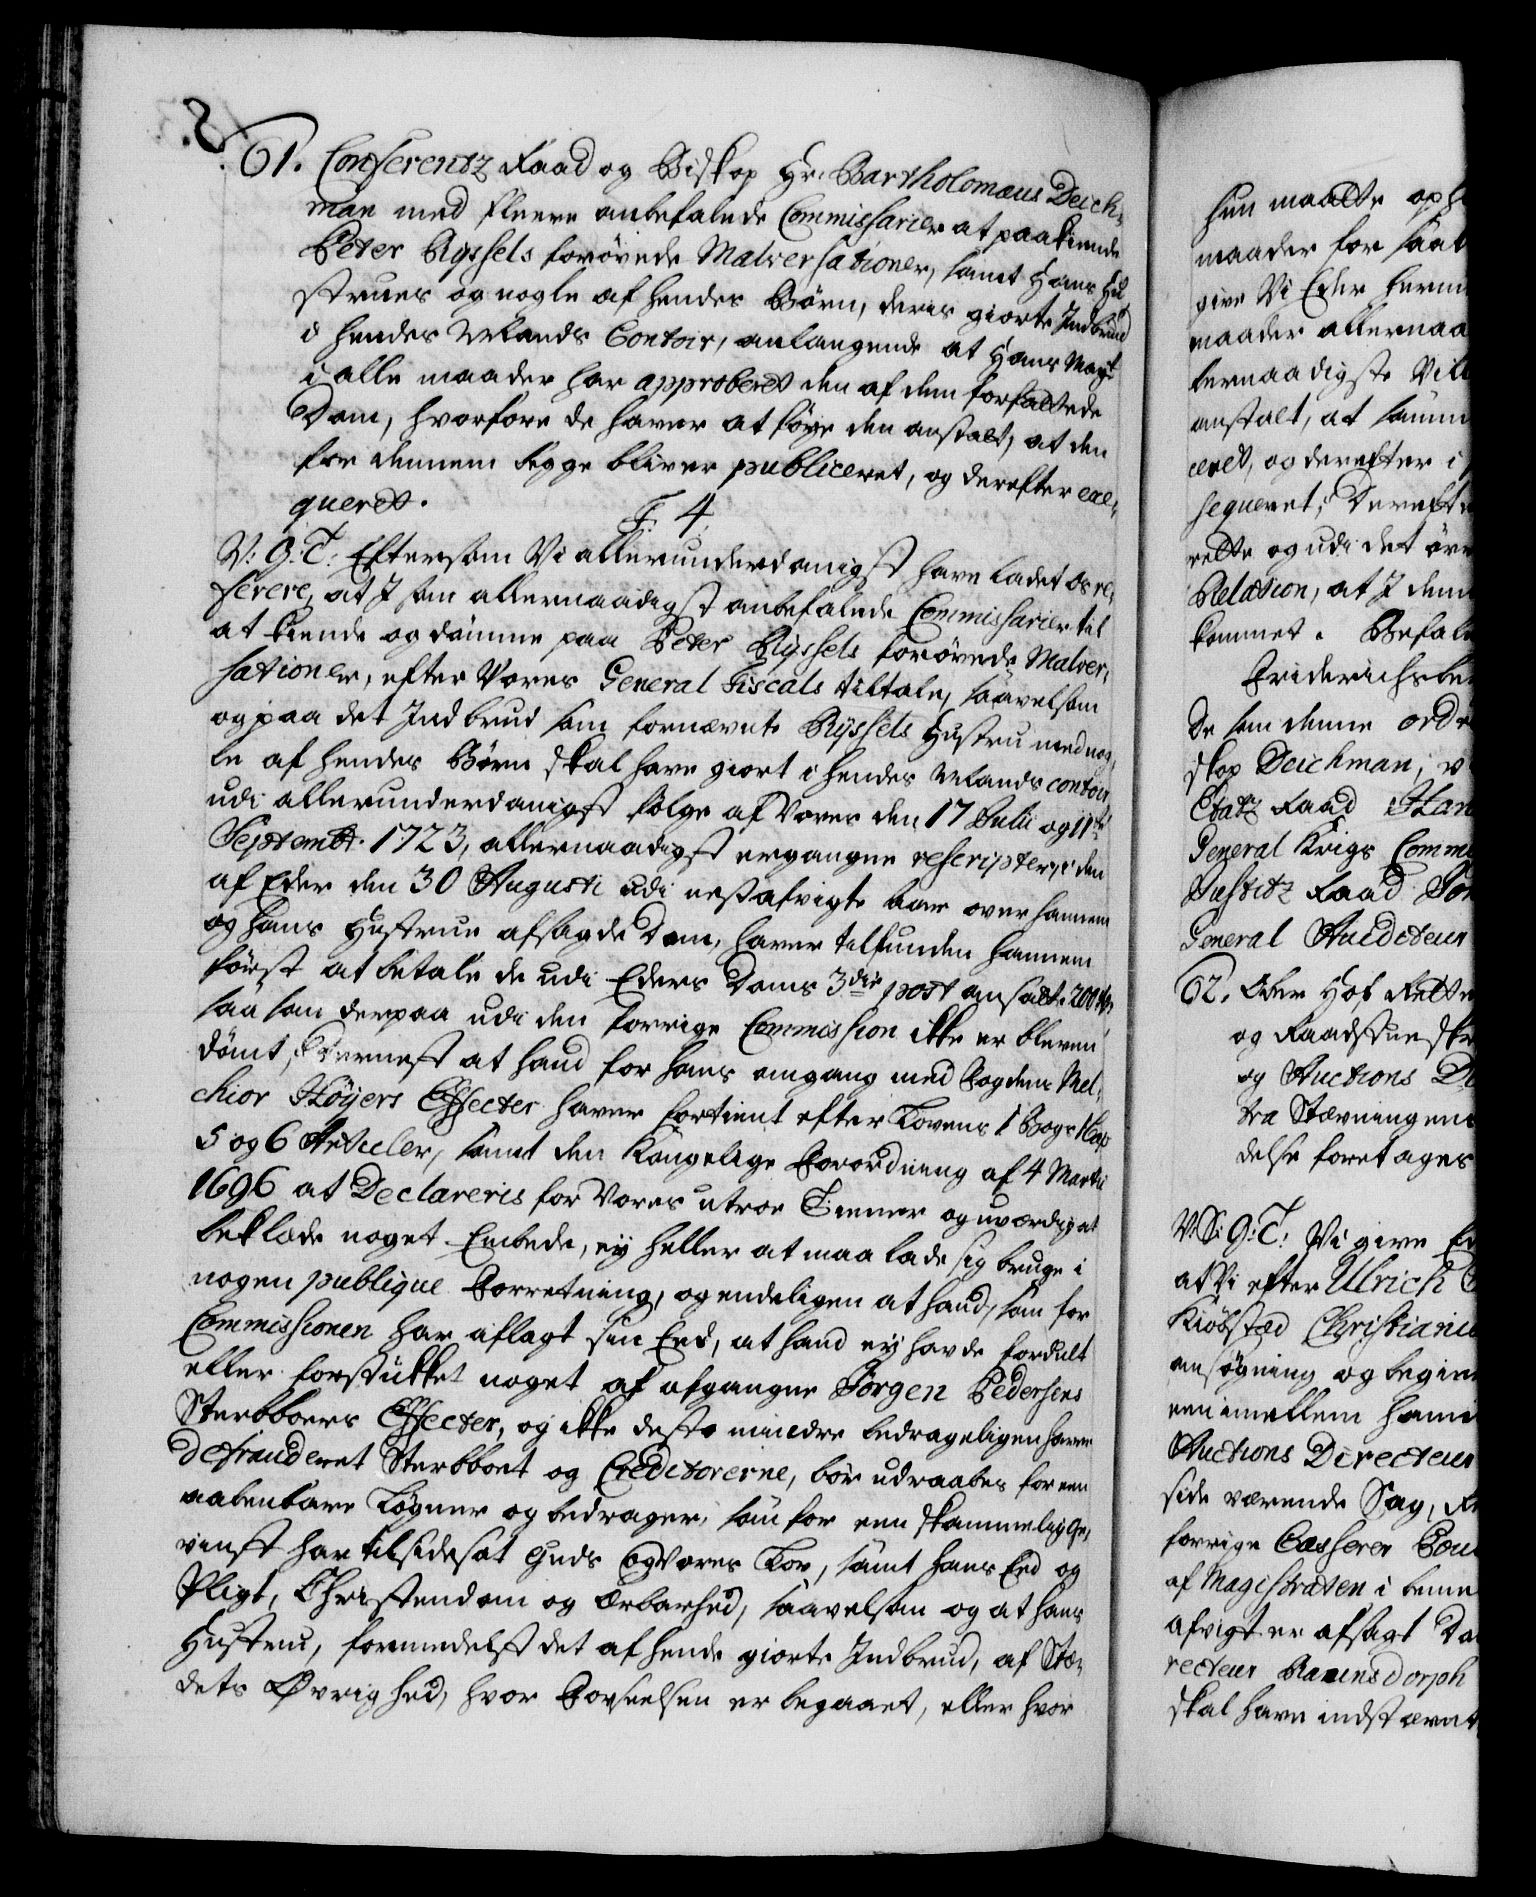 61. Conferentz Raad og Biskop Hr. Bartholomæus Deich-
man med fleere anbefalede Commissarier at paakiende
Peter Ryssels forövede Malversationer, samt Hans Hu-
strues og nogle af hendes Börn, deris giorte Indbrud
i hendes Mands Contoir, anlangende at Hans Mayt
i alle maader har approberet den af dem forfattede
Dom, hvorfore de haver at föye den anstalt, at den
for dennem begge bliver publiceret, og derefter exe-
queret.
F. 4.
V: G. T: Eftersom Vi allerunderdanigst have ladet os re-
ferere, at I som allernaadigst anbefalede Commissarier til
at kiende og dömme paa Peter Ryssels forövede Malver-
sationer, efter Vores General Fiscals tiltale, saavelsom
og paa det Indbrud som fornævnte Ryssels Hustru med nog-
le af hendes Börn skal have giort i hendes Mands contoir
udi allerunderdanigst fölge af Vores den 17 Julii og 11te
Septembr. 1723, allernaadigst ergangne rescripter, i den
af Eder den 30 Augusti udi nestafvigte aar over hannem
og hans Hustrue afsagde Dom, haver tilfunden hannem
först at betale de udi Eders Doms 3die post ansatte 200 Rdr
saasom derpaa udi den forrige Commission ikke er bleven
dömt, Dernest at hand for hans omgang med Fogden Mel-
chior Höyers Effecter haver fortient efter Lovens 1 Bogs 1 Cap
5 og 6 Articler, samt den Kongelige Forordning af 4 Martii
1696 at Declareris for Vores utroe Tienner og uværdig at
beklæde noget Embede, ey heller at maa lade sig bruge i
nogen publique Forretning, og endeligen at hand, som for
Commissionen har aflagt sin Eed, at hand ey havde fordult
eller forstukket noget af afgangne Jörgen Pedersens
Sterbboers Effecter, og ikke desto mindre bedrageligen have
defrauderet Sterbboet og Creditorerne, bör udraabes for een
aabenbare Lögner og bedrager, som for een skammelig Ge-
vinst har tilsidesat Guds og Vores Lov, samt hans Eed og
Pligt, Christendom og Ærbarhed, saavelsom og at hans
Hustru, formedelst det af hende giorte Indbrud, af Stæ-
dets Øvrighed, hvor Forseelsen er begaaet, eller hvor
hun maatte
maader for saa
give Vi Eder herm
maader allernaa
lernaadigste Vill
anstalt, at samm
ceret, og derefter i
sequeret; Derefte
rette og udi det övr
Relation, at I dem
kommet. Befale
Friderichsbe
De som denne ordre
skop Deichman, v
Etatz Raad
General Krigs Comm
Justitz Raad
General Auditeur
62. Over Hof Rette
og Raadstueskr
og Auctions Di
tra Stævningen
delse foretages
V.S: G: T: Vi give Ed
at Vi efter Ulrich
Kiöbsted Christiania
ansögning og begier
een imellem ham
Auctions Directeur
side værende Sag,
forrige Casserer
af Magistraten i bem
afvigt er afsagt Do
recteur Ravensdorph
skal have indstævnt